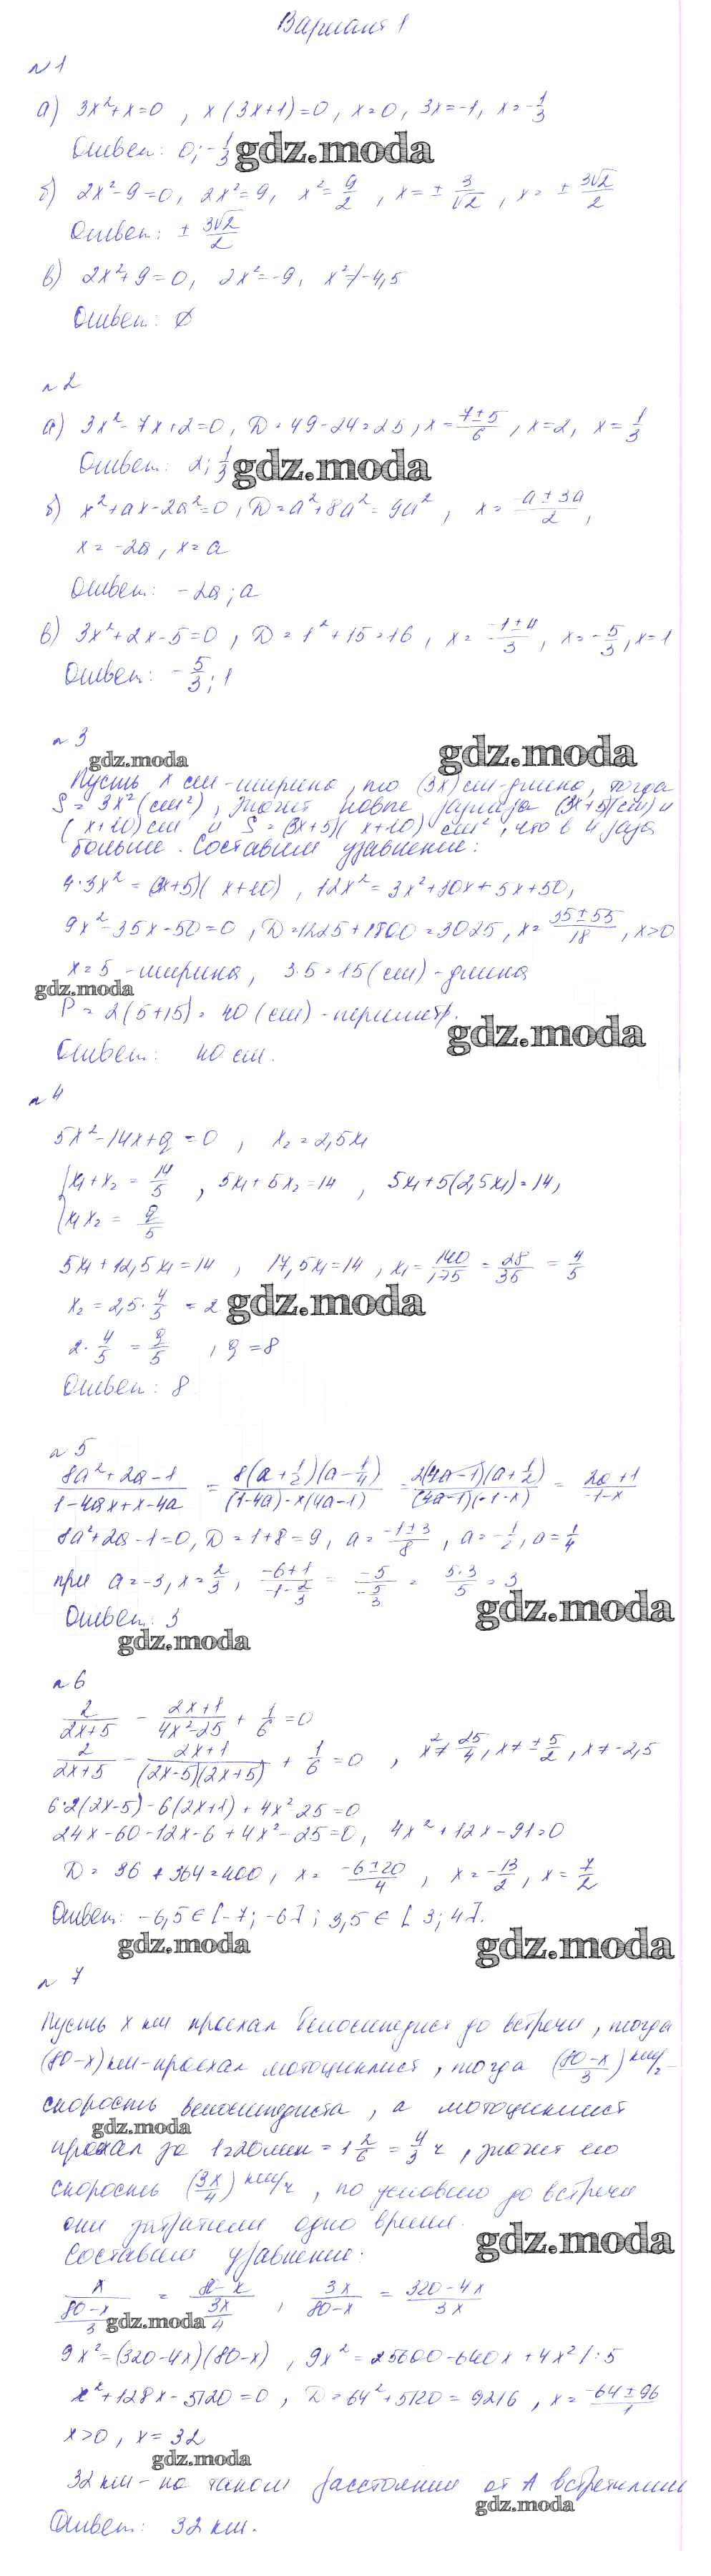 Вариант 1
№1
а) 3x²+x=0 , x(3x+1)=0, x=0, 3x=-1, x=-1/3
Ответ: 0; -1/3 gdz.moda
б) 2x²-9=0, 2x²=9, x²=9/2 , x=±3/√2 , x=±3√2/2
Ответ: ±3√2/2
в) 2x²+9=0, 2x²=-9, x²≠-4,5
Ответ: ∅
№2
а) 3x²-7x+2=0, D=49-24=25, x=(7±5)/6 , x=2, x=1/3
Ответ: 2; 1/3 gdz.moda
б) x²+ax-2a²=0, D=a²+8a²=9a² , x=(-a±3a)/2 ,
x=-2a, x=a
Ответ: -2a; a
в) 3x²+2x-5=0 , D=1²+15=16 , x=(-1±4)/3 , x=-5/3, x=1
Ответ: -5/3; 1
№3
gdz.moda gdz.moda
Пусть x см-ширина, то (3x)см-длина, тогда
S=3x²(см²), значит новые размеры (3x+5)(см) и
(x+10)см и S=(3x+5)(x+10) см², что в 4 раза
больше. Составим уравнение:
4·3x²=(3x+5)(x+10) , 12x²=3x²+30x+5x+50,
9x²-35x-50=0 , D=1225+1800=3025, x=(35±55)/18 , x>0
x=5 -ширина, 3·5=15(см)-длина
gdz.moda
P=2(5+15)=40(см)-периметр.
gdz.moda
Ответ: 40 см.
№4
5x²-14x+q=0 , x₂=2,5x₁
{x₁+x₂=14/5 , 5x₁+5x₂=14 , 5x₁+5(2,5x₁)=14,
{x₁x₂=q/5
5x₁+12,5x₁=14 , 17,5x₁=14 , x₁=140/175=28/35=4/5
x₂=2,5·4/5=2 gdz.moda
2·4/5=q/5 , q=8
Ответ: 8
№5
(8a²+2a-1)/(1-4ax+x-4a) = 8(a+1/2)(a-1/4)/((1-4a)-x(4a-1)) = 2(4a-1)(a+1/2)/((4a-1)(-1-x)) = (2a+1)/(-1-x)
8a²+2a-1=0, D=1+8=9, a=(-1±3)/8 , a=-1/2, a=1/4
при a=-3, x=2/3, (-6+1)/(-1-2/3) = -5/(-5/3) = 5·3/5 = 3
Ответ: 3 gdz.moda
gdz.moda
№6
2/(2x+5) - (2x+1)/(4x²-25) + 1/6 =0
2/(2x+5) - (2x+1)/((2x-5)(2x+5)) + 1/6 =0 , x²≠25/4, x≠±5/2, x≠-2,5
6·2(2x-5)-6(2x+1)+4x²-25=0
24x-60-12x-6+4x²-25=0, 4x²+12x-91=0
D=36+364=400, x=(-6±20)/4 , x=-13/2, x=7/2
Ответ: -6,5∈[-7;-6]; 3,5∈[3;4].
gdz.moda gdz.moda
№7
Пусть x км проехал велосипедист до встречи, тогда
(80-x)км-проехал мотоциклист, тогда ((80-x)/3)км/ч-
скорость велосипедиста, а мотоциклист
gdz.moda
проехал за 1ч20мин=1 2/6=4/3 ч, значит его
скорость (3x/4)км/ч, по условию до встречи
они затратили одно время.
gdz.moda
Составим уравнение:
x/((80-x)/3) = (80-x)/(3x/4) , 3x/(80-x) = (320-4x)/3x
gdz.moda
9x²=(320-4x)(80-x) , 9x²=25600-640x+4x²/:5
x²+128x-5120=0 , D=64²+5120=9216 , x=(-64±96)/1
x>0, x=32
gdz.moda
32км-на таком расстоянии от A встретились
gdz.moda
Ответ: 32 км.